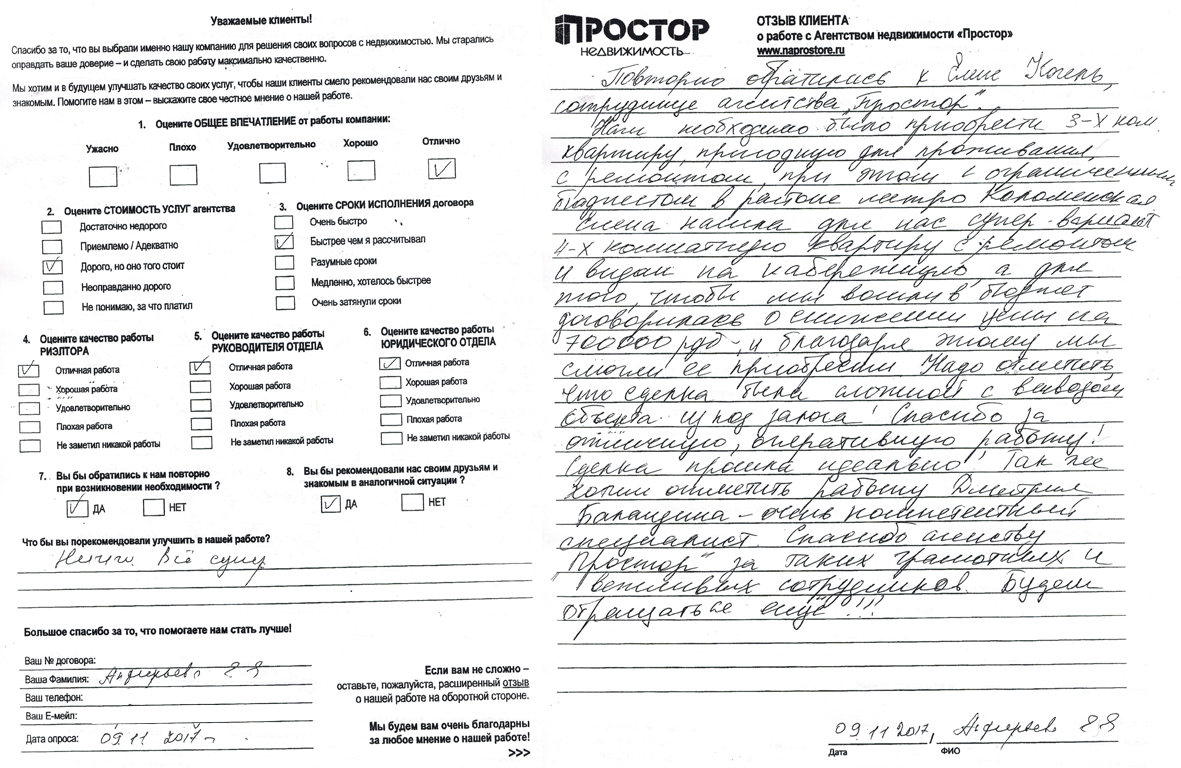 Уважаемые клиенты!
Спасибо за то, что вы выбрали именно нашу компанию для решения своих вопросов с недвижимостью. Мы старались
оправдать ваше доверие – и сделать свою работу максимально качественно.
Мы хотим и в будущем улучшать качество своих услуг, чтобы наши клиенты смело рекомендовали нас своим друзьям и
знакомым. Помогите нам в этом – выскажите свое честное мнение о нашей работе.
1. Оцените ОБЩЕЕ ВПЕЧАТЛЕНИЕ от работы компании:
Ужасно Плохо Удовлетворительно Хорошо Отлично
2. Оцените СТОИМОСТЬ УСЛУГ агентства
Достаточно недорого
Приемлемо / Адекватно
Дорого, но оно того стоит
Неоправданно дорого
Не понимаю, за что платил
3. Оцените СРОКИ ИСПОЛНЕНИЯ договора
Очень быстро
Быстрее чем я рассчитывал
Разумные сроки
Медленно, хотелось быстрее
Очень затянули сроки
4. Оцените качество работы
РИЭЛТОРА
Отличная работа
Хорошая работа
Удовлетворительно
Плохая работа
Не заметил никакой работы
5. Оцените качество работы
РУКОВОДИТЕЛЯ ОТДЕЛА
Отличная работа
Хорошая работа
Удовлетворительно
Плохая работа
Не заметил никакой работы
6. Оцените качество работы
ЮРИДИЧЕСКОГО ОТДЕЛА
Отличная работа
Хорошая работа
Удовлетворительно
Плохая работа
Не заметил никакой работы
7. Вы бы обратились к нам повторно
при возникновении необходимости ?
ДА НЕТ
8. Вы бы рекомендовали нас своим друзьям и
знакомым в аналогичной ситуации ?
ДА НЕТ
Что бы вы порекомендовали улучшить в нашей работе?
Ничего. Всё супер
Большое спасибо за то, что помогаете нам стать лучше!
Ваш № договора:
Ваша Фамилия:
Ваш телефон:
Ваш E-мейл:
Дата опроса: 09.11 2017г.
Если вам не сложно –
оставьте, пожалуйста, расширенный отзыв
о нашей работе на оборотной стороне.
Мы будем вам очень благодарны
за любое мнение о нашей работе!
>>>
ПРОСТОР
НЕДВИЖИМОСТЬ
ОТЗЫВ КЛИЕНТА
о работе с Агентством недвижимости «Простор»
www.naprostore.ru
Повторно обратились к Елене Коген,
сотруднице агентства „Простор".
Нам необходимо было приобрести 3-х ком.
квартиру, пригодную для проживания,
с ремонтом, при этом с ограниченным
бюджетом в районе метро Коломенская
Елена нашла для нас супер-вариант
4-х комнатную квартиру с ремонтом
и видом на набережную, а для
того, чтобы мы вошли в бюджет
договорилась о снижении цены на
700000 руб., и благодаря этому мы
смогли ее приобрести Надо отметить
что сделка была сложной с выводом
объекта из под залога! Спасибо за
отличную, оперативную работу!
Сделка прошла идеально! Так же
хотим отметить работу Дмитрия
Баландина – очень компетентный
специалист Спасибо агенству
„Простор" за таких грамотных и
вежливых сотрудников. Будем
обращаться ещё!!!
09.11 2017,
Дата ФИО